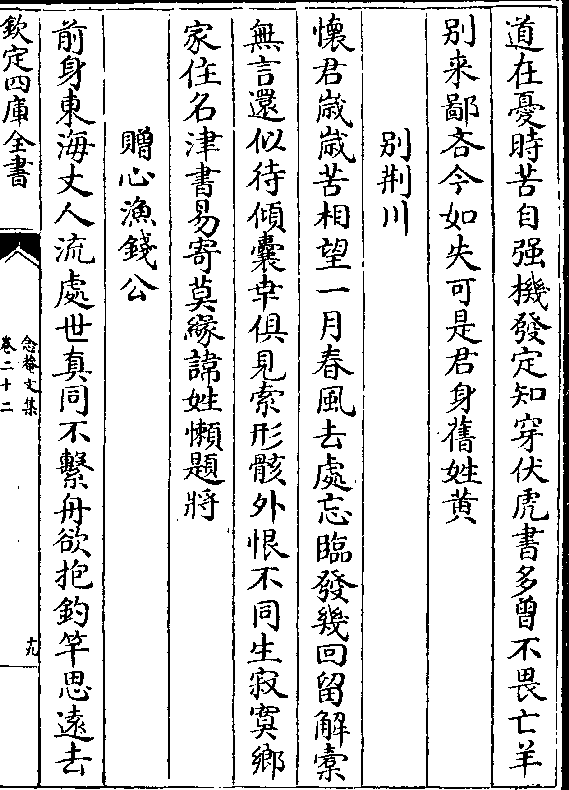 道在憂時苦自强機發定知穿伏虎書多曾不畏亡羊
别来鄙吝今如失可是君身舊姓黄
别荆川
懐君嵗嵗苦相望一月春風去處忘臨發幾回留解槖
無言還似待傾囊幸俱見索形骸外恨不同生寂寞鄉
家住名津書易寄莫緣諱姓懶題將
贈心漁錢公
前身東海丈人流處世真同不繫舟欲抱釣竿思遠去
欽定四庫全書
念菴文集
卷二十二
十九